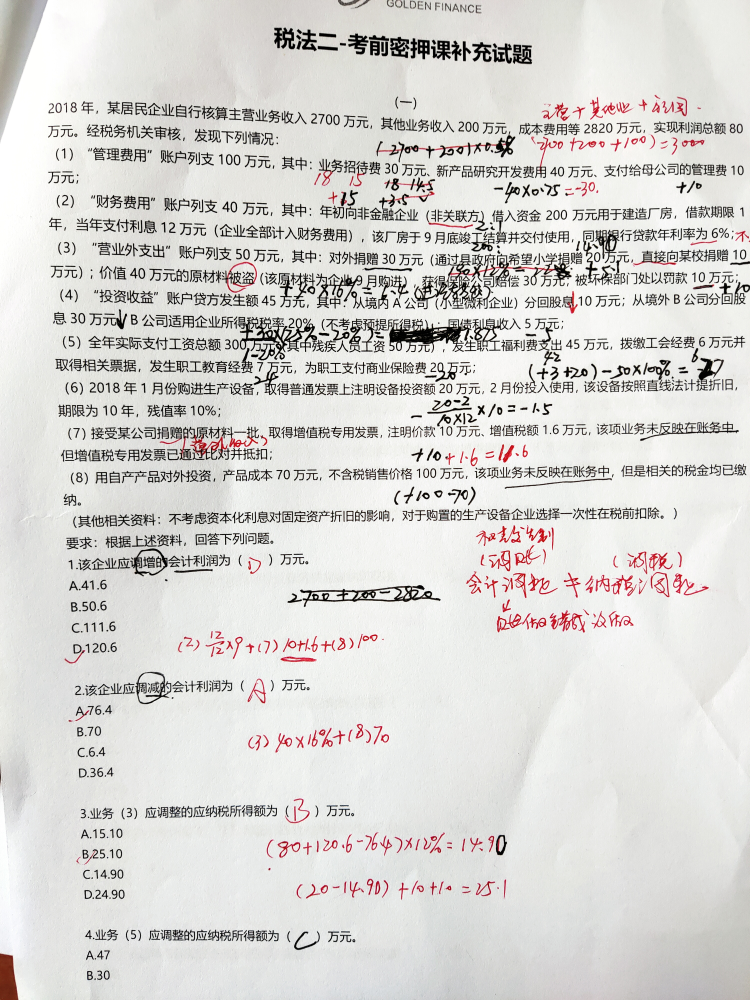 GOLDEN FINANCE
税法二-考前密押课补充试题
(一)
主营+其他业+视同
2018 年，某居民企业自行核算主营业务收入 2700 万元，其他业务收入 200 万元，成本费用等 2820 万元，实现利润总额 80
万元。经税务机关审核，发现下列情况：
(2700+200)×0.5%
(2700+200+100)=3000
(1) “管理费用”账户列支 100 万元，其中：业务招待费 30 万元、新产品研究开发费用 40 万元、支付给母公司的管理费 10
万元；
18 15
+15
-40×0.75=-30.
+10
(2) “财务费用”账户列支 40 万元，其中：年初向非金融企业（非关联方）借入资金 200 万元用于建造厂房，借款期限 1
年，当年支付利息 12 万元（企业全部计入财务费用），该厂房于 9 月底竣工结算并交付使用，同期银行贷款年利率为 6%；
(3) “营业外支出”账户列支 50 万元，其中：对外捐赠 30 万元（通过县政府向希望小学捐赠 20 万元，直接向某校捐赠 10
14.90
+5.1
万元）；价值 40 万元的原材料被盗（该原材料为企业 9 月购进），获得保险公司赔偿 30 万元；被环保部门处以罚款 10 万元；
+40×16%=6.4
+10
(4) “投资收益”账户贷方发生额 45 万元，其中：从境内 A 公司（小型微利企业）分回股息 10 万元；从境外 B 公司分回股
息 30 万元，B 公司适用企业所得税税率 20%（不考虑预提所得税）；国债利息收入 5 万元；
1-20%
1.875
-5
(5) 全年实际支付工资总额 300 万元（其中残疾人员工资 50 万元），发生职工福利费支出 45 万元，拨缴工会经费 6 万元并
取得相关票据，发生职工教育经费 7 万元，为职工支付商业保险费 20 万元；
42
6
24
-20
(+3+20)-50×100%=-27
(6) 2018 年 1 月份购进生产设备，取得普通发票上注明设备投资额 20 万元，2 月份投入使用，该设备按照直线法计提折旧，
期限为 10 年，残值率 10%；
-20-2/10×12×10=-1.5
(7) 接受某公司捐赠的原材料一批，取得增值税专用发票，注明价款 10 万元、增值税额 1.6 万元，该项业务未反映在账务中，
但增值税专用发票已通过比对并抵扣；
+10+1.6=11.6
(8) 用自产产品对外投资，产品成本 70 万元，不含税销售价格 100 万元，该项业务未反映在账务中，但是相关的税金均已缴
纳。
(+100-70)
（其他相关资料：不考虑资本化利息对固定资产折旧的影响，对于购置的生产设备企业选择一次性在税前扣除。）
要求：根据上述资料，回答下列问题。
1.该企业应调增的会计利润为（D）万元。
(调账)
(调税)
会计调整≠纳税调整
A.41.6
2700+200-2820
B.50.6
C.111.6
D.120.6
(2) 12/12×9+(7) 10+1.6+(8)100.
2.该企业应调减的会计利润为（A）万元。
A.76.4
B.70
(3) 40×16%+(8)70
C.6.4
D.36.4
3.业务（3）应调整的应纳税所得额为（B）万元。
A.15.10
B.25.10
(80+120.6-76.4)×12%=14.90
C.14.90
D.24.90
(20-14.90)+10+10=25.1
4.业务（5）应调整的应纳税所得额为（C）万元。
A.47
B.30